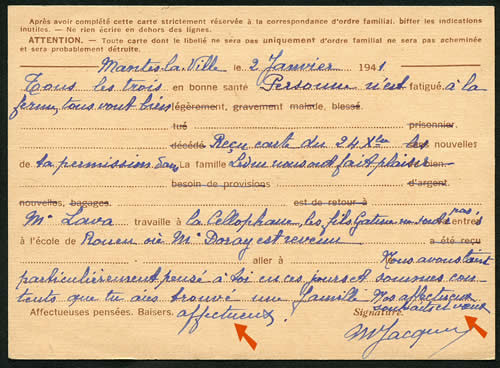 Après avoir complété cette carte strictement réservée à la correspondance d'ordre familial, biffer les indications
inutiles. — Ne rien écrire en dehors des lignes.
ATTENTION. — Toute carte dont le libellé ne sera pas uniquement d'ordre familial ne sera pas acheminée
et sera probablement détruite.
Mantes-la-Ville le 2 Janvier 1941
Tous les trois en bonne santé Personne n'est fatigué, à la
ferme, tous vont bien légèrement, gravement malade, blessé.
tué prisonnier.
décédé Reçu carte du 24 Xbre les nouvelles
de ta permission. La famille nous ont fait plaisir bien.
besoin de provisions d'argent.
nouvelles, bagages. est de retour à
Mr Lava travaille à la Cellophane, les fils Gatine ne sont pas rentrés
à l'école de Rouen où Mr Doray est revenu a été reçu
aller à Nous avons tant
particulièrement pensé à toi en ces jours et sommes con-
tents que tu aies trouvé une famille Nos affectueux
souhaits et vœux
Affectueuses pensées. Baisers. affectueux. Signature.
M Jacquin